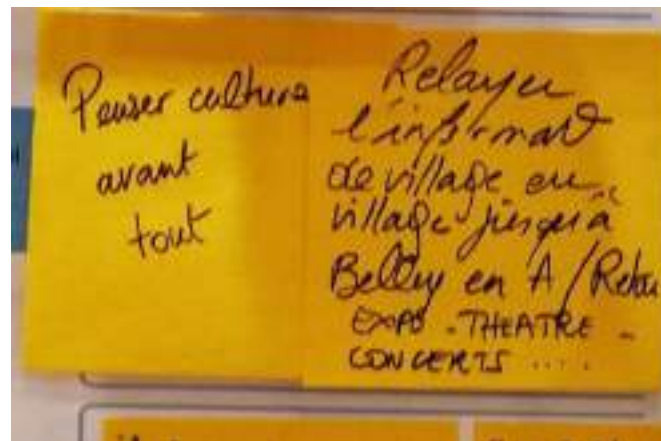 Penser culture
avant
tout
Relayer
l'informat°
de village en
village jusqu'à
Belley en A/Retou
EXPO - THEATRE -
CONCERTS ....